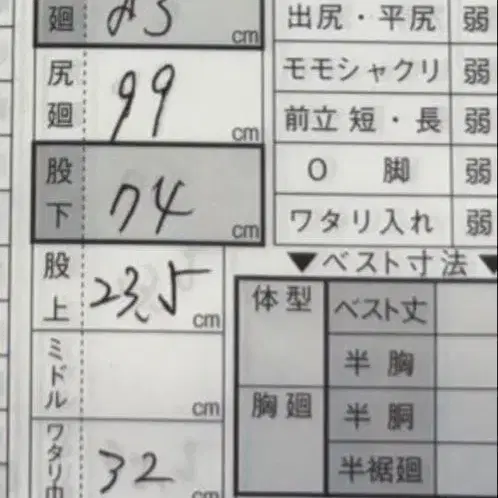 廻 cm
尻廻 99 cm
股下 74 cm
股上 23.5 cm
ミドル cm
ワタリ巾 32
出尻・平尻 弱
モモシャクリ 弱
前立 短・長 弱
O 脚 弱
ワタリ入れ 弱
▼ベスト寸法▼
体型 ベスト丈
半胸
胸廻 半胴
半裾廻